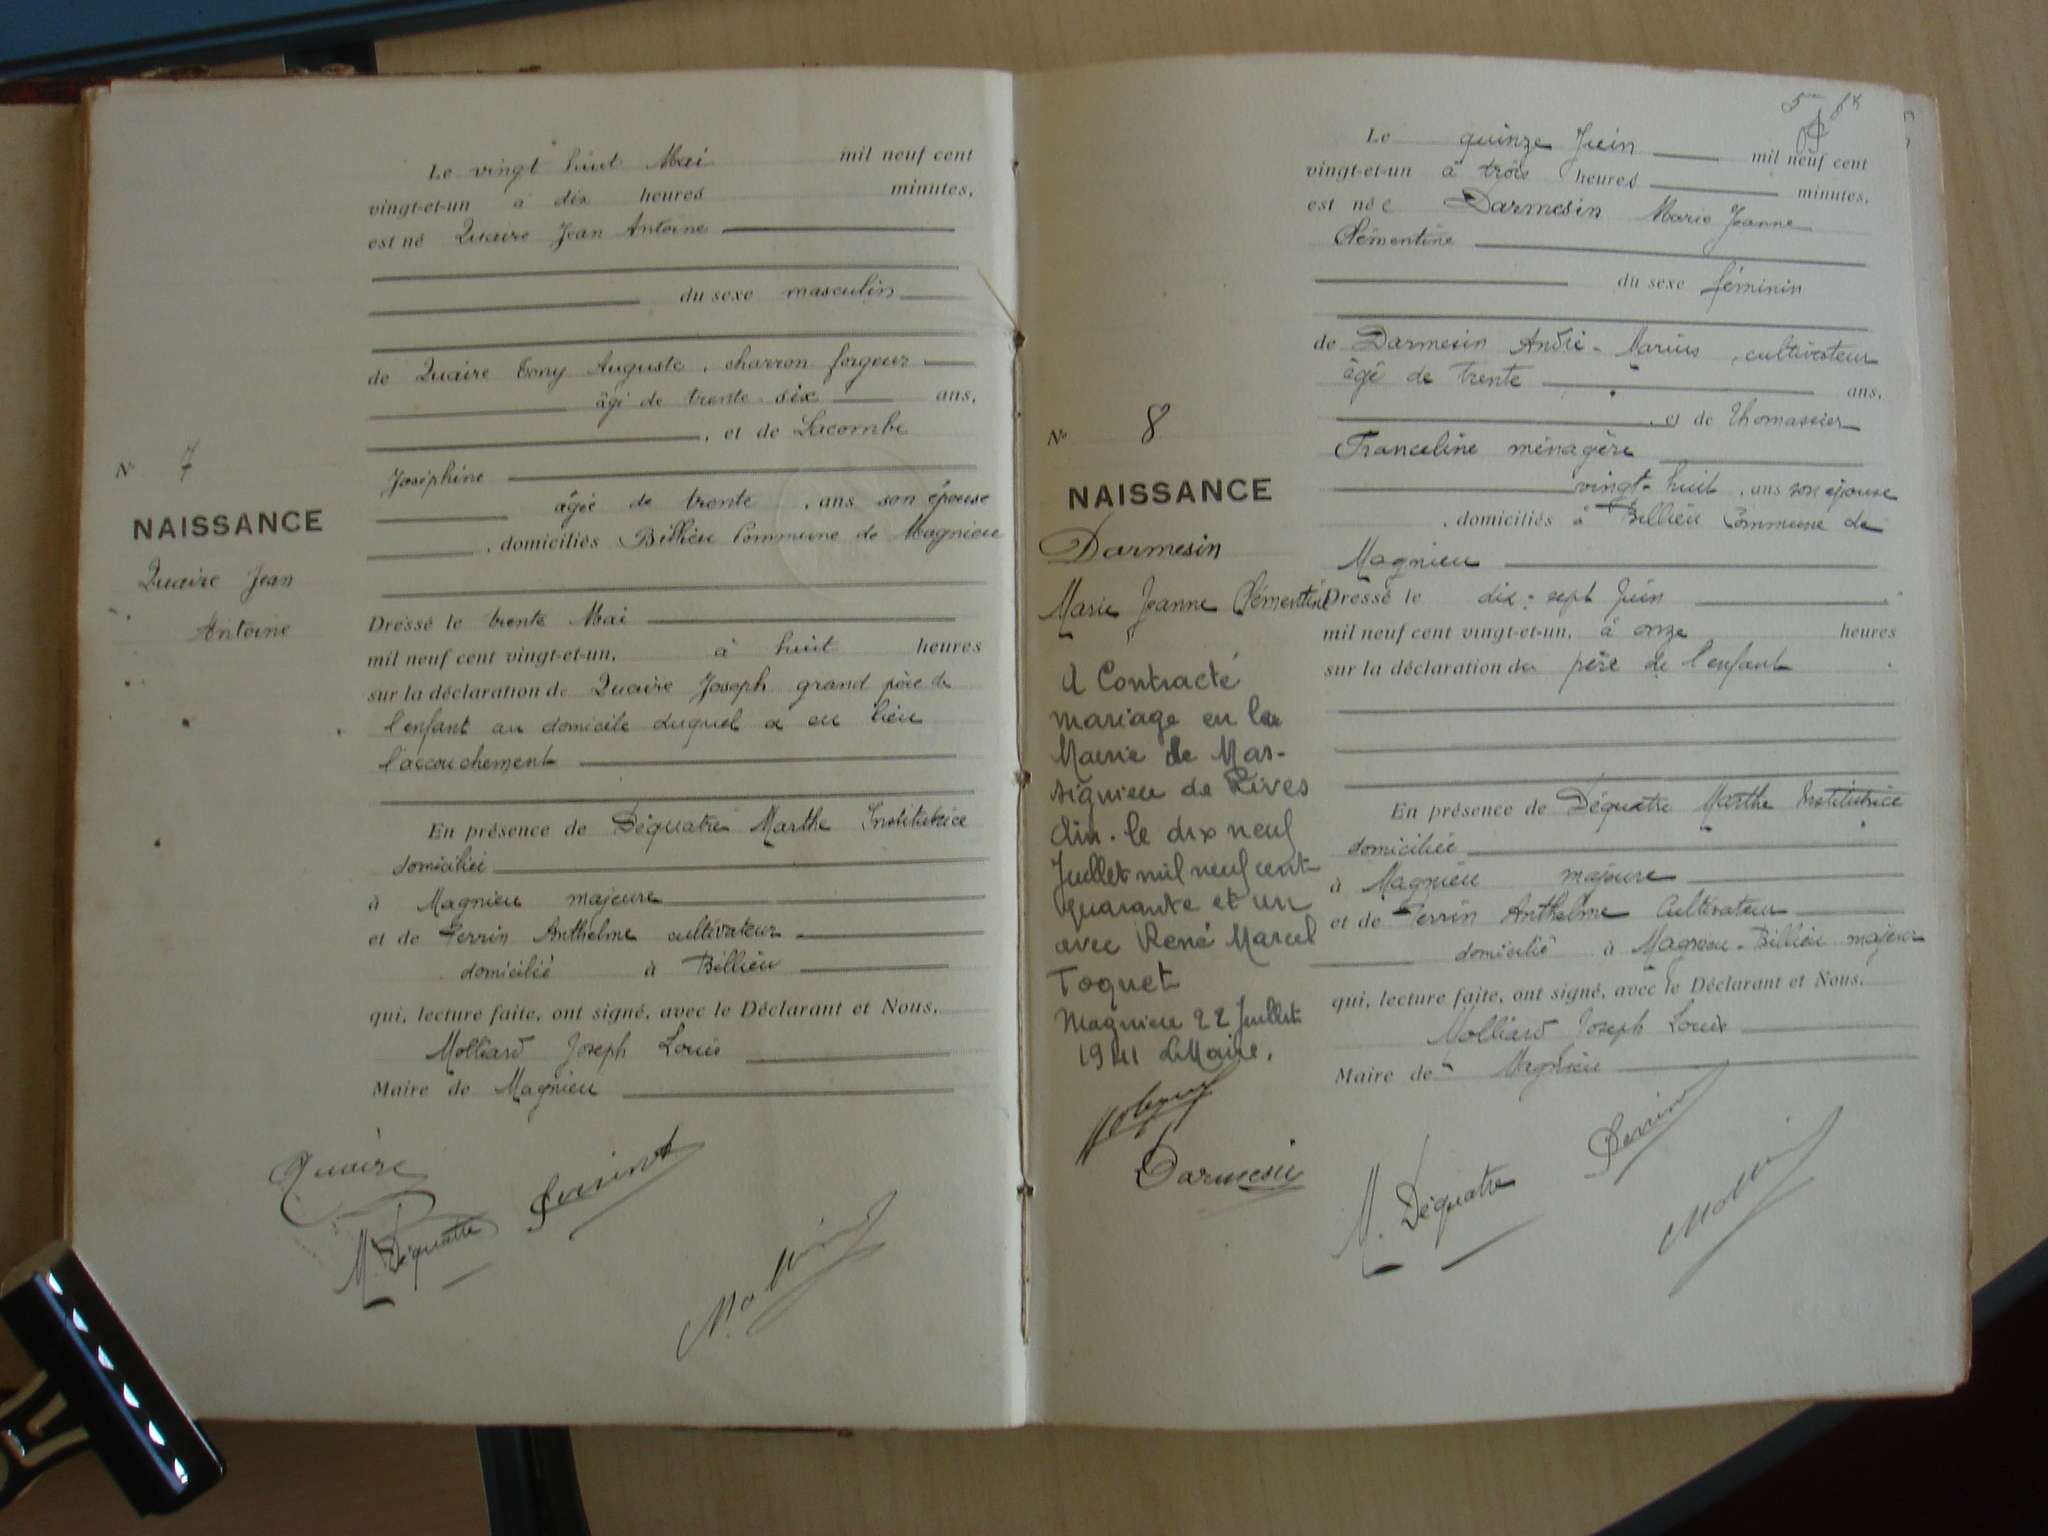 Le vingt huit Mai mil neuf cent
vingt-et-un à dix heures minutes,
est né Quaire Jean Antoine
du sexe masculin
de Quaire Tony Auguste, charron forgeur
âgé de trente-six ans,
, et de Lacombe
Joséphine
âgée de trente, ans son épouse
, domiciliés Billieu Commune de Magnieu
N° 7
NAISSANCE
Quaire Jean
Antoine
Dressé le trente Mai
mil neuf cent vingt-et-un, à huit heures
sur la déclaration de Quaire Joseph grand père de
l'enfant au domicile duquel a eu lieu
l'accouchement
En présence de Déquatre Marthe Institutrice
domiciliée
à Magnieu majeure
et de Perrin Anthelme cultivateur
domicilié à Billieu
qui, lecture faite, ont signé, avec le Déclarant et Nous,
Molliard Joseph Louis
Maire de Magnieu
Quaire
M. Déquatre
Perrin
5
Le quinze Juin mil neuf cent
vingt-et-un à trois heures minutes,
est née Darmesin Marie Jeanne
Clémentine
du sexe féminin
de Darmesin André-Marius, cultivateur
âgé de trente ans,
, et de Thomassier
Franceline ménagère
vingt-huit, ans son épouse
, domiciliés à Billieu Commune de
Magnieu
N° 8
NAISSANCE
Darmesin
Marie Jeanne Clémentine
A Contracté
mariage en la
Mairie de Mas-
signieu de Rives
Ain. le dix neuf
Juillet mil neuf cent
quarante et un
avec René Marcel
Toquet
Magnieu 22 Juillet
1941 Le Maire,
Darmesin
Dressé le dix-sept Juin
mil neuf cent vingt-et-un, à onze heures
sur la déclaration du père de l'enfant
En présence de Déquatre Marthe Institutrice
domiciliée
à Magnieu majeure
et de Perrin Anthelme Cultivateur
domicilié à Magnieu-Billieu majeur
qui, lecture faite, ont signé, avec le Déclarant et Nous,
Molliard Joseph Louis
Maire de Magnieu
M. Déquatre
Perrin